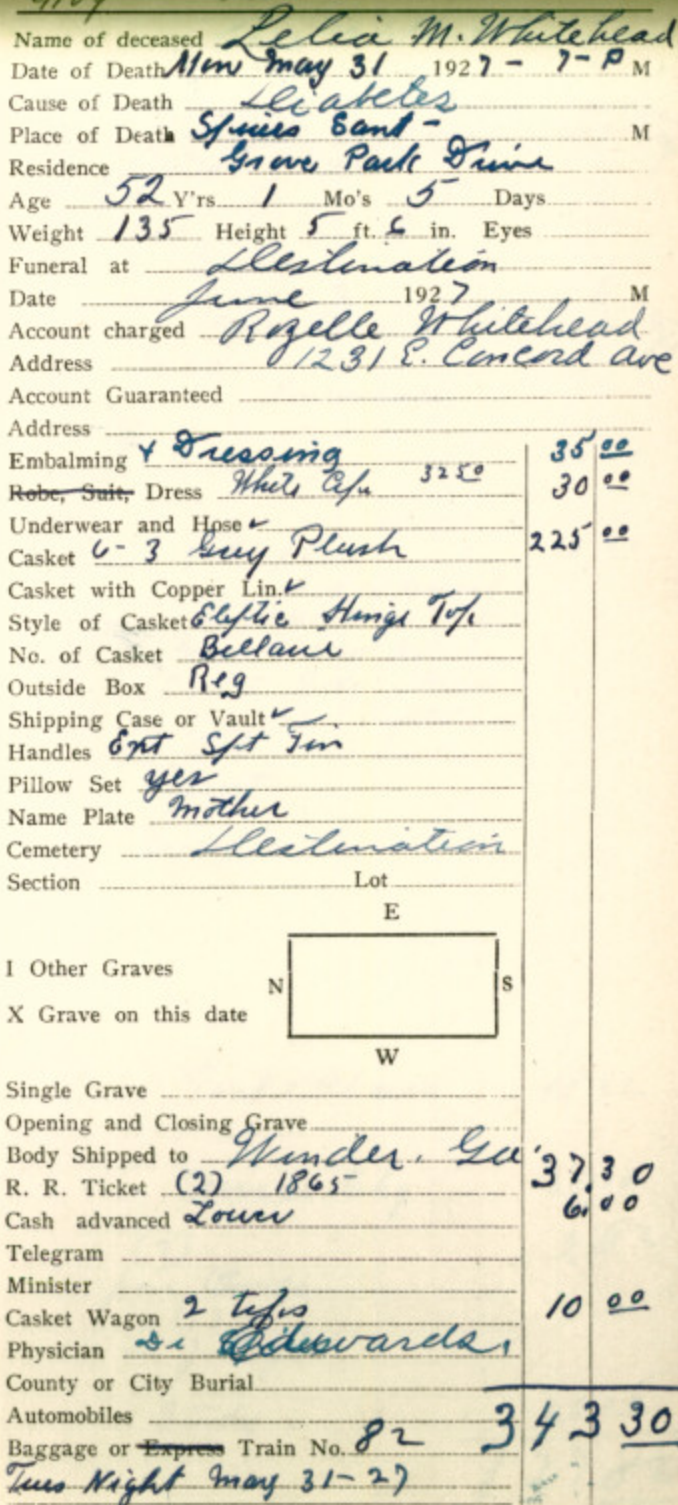 Name of deceased Lelia M. Whitehead
Date of Death Mon May 31 1927 - 7-P M
Cause of Death Diabetes
Place of Death Spiers Sant - M
Residence Grove Park Drive
Age 52 Y'rs 1 Mo's 5 Days
Weight 135 Height 5 ft. 6 in. Eyes
Funeral at Destination
Date June 1927 M
Account charged Rozelle Whitehead
Address 1231 E. Concord Ave
Account Guaranteed
Address
Embalming + Dressing 35 00
Robe, Suit, Dress White 3250 30 00
Underwear and Hose ✓
Casket 6-3 Grey Plush 225 00
Casket with Copper Lin. ✓
Style of Casket Eliptic Hinge Top
No. of Casket
Outside Box Reg
Shipping Case or Vault ✓
Handles Ext
Pillow Set yes
Name Plate Mother
Cemetery Destination
Section Lot
E
I Other Graves
N S
X Grave on this date
W
Single Grave
Opening and Closing Grave
Body Shipped to Winder, Ga
R. R. Ticket (2) 1865 37.30
Cash advanced Lower 6.00
Telegram
Minister
Casket Wagon 2 trips 10 00
Physician Dr Edwards
County or City Burial
Automobiles 343 30
Baggage or Express Train No. 82
Tues Night May 31-27